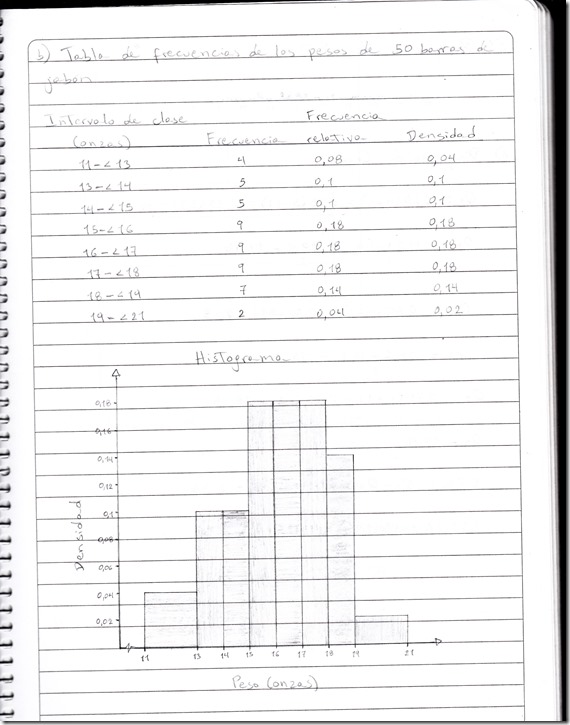 b) Tabla de frecuencias de los pesos de 50 barras de
jabon
Intervalo de clase Frecuencia
(onzas) Frecuencia relativa Densidad
11-<13 4 0,08 0,04
13-<14 5 0,1 0,1
14-<15 5 0,1 0,1
15-<16 9 0,18 0,18
16-<17 9 0,18 0,18
17-<18 9 0,18 0,18
18-<19 7 0,14 0,14
19-<21 2 0,04 0,02
Histograma
0,18
0,16
0,14
0,12
0,1
0,08
0,06
0,04
0,02
Densidad
11 13 14 15 16 17 18 19 21
Peso (onzas)